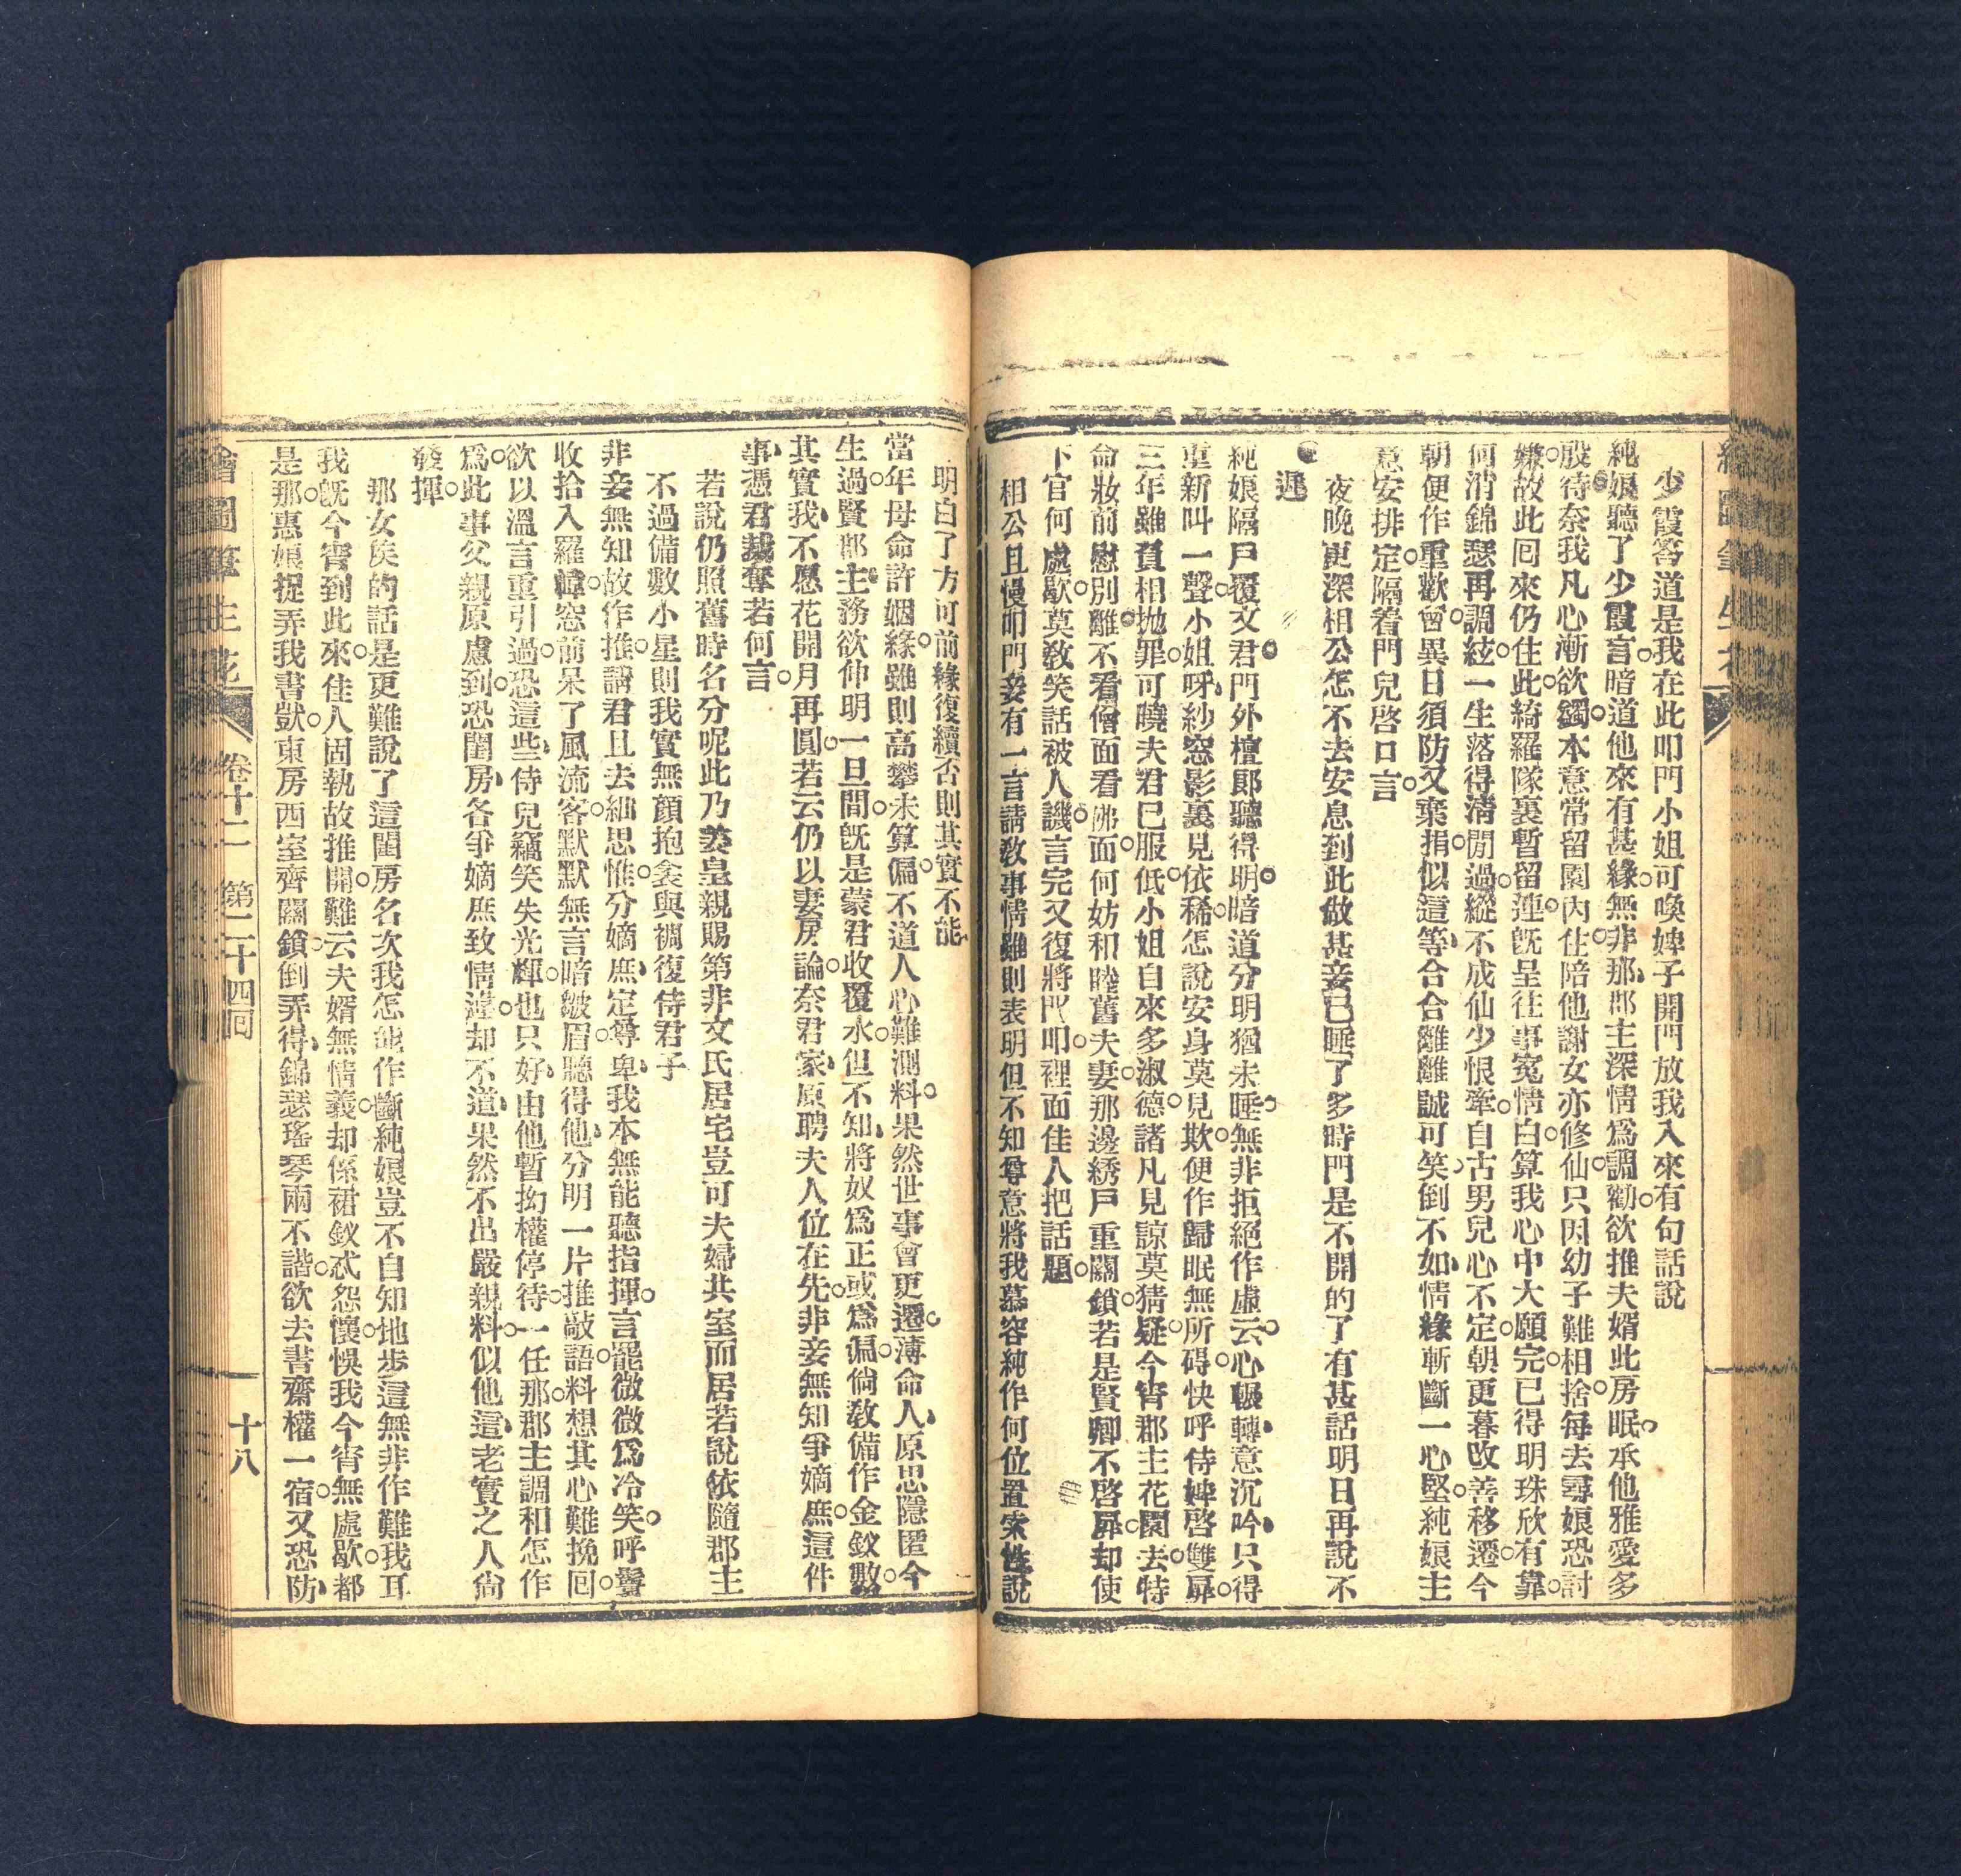 少霞答道是我在此叩門小姐可喚婢子開門放我入來有句話說
純娘聽了少霞言暗道他來有甚緣無非那郡主深情爲調勸欲推夫婿此房眠承他雅愛多
殷待奈我凡心漸欲蠲本意常留園內住陪他謝女亦修仙只因幼子難相捨每去尋娘恐討
嫌故此回來仍住此綺羅隊裏暫留連既呈往事冤情白算我心中大願完已得明珠欣有靠
何消錦瑟再調絃一生落得清閒過縱不成仙少恨牽自古男兒心不定朝更暮改善移遷今
朝便作重歡會異日須防又棄捐似這等合合離離誠可笑倒不如情緣斬斷一心堅純娘主
意安排定隔着門兒啓口言
夜晚更深相公怎不去安息到此做甚妾已睡了多時門是不開的了有甚話明日再說不
送
純娘隔戶覆文君門外檀郎聽得明暗道分明猶未睡無非拒絕作虛云心輾轉意沉吟只得
重新叫一聲小姐呀紗窓影裏見依稀怎說安身莫見欺便作歸眠無所碍快呼侍婢啓雙扉
三年雖負相抛罪可曉夫君已服低小姐自來多淑德諸凡見諒莫猜疑今宵郡主花園去特
命妝前慰別離不看僧面看佛面何妨和睦舊夫妻那邊綉戶重關鎖若是賢卿不啓扉却使
下官何處歇莫教笑話被人譏言完又復將門叩裡面佳人把話題
相公且慢叩門妾有一言請教事情雖則表明但不知尊意將我慕容純作何位置索性說
明白了方可前緣復續否則其實不能
當年母命許姻緣雖則高攀未算偏不道人心難測料果然世事會更遷薄命人原思隱匿今
生過賢郡主務欲伸明一旦間既是蒙君收覆水但不知將奴爲正或爲偏倘教備作金釵數
其實我不愿花開月再圓若云仍以妻房論奈君家原聘夫人位在先非妾無知爭嫡庶這件
事憑君裁奪若何言
若說仍照舊時名分呢此乃姜皇親賜第非文氏居宅豈可夫婦共室而居若說依隨郡主
不過備數小星則我實無顏抱衾與裯復侍君子
非妾無知故作推請君且去細思惟分嫡庶定尊卑我本無能聽指揮言罷微微爲冷笑呼鬟
收拾入羅幃窓前呆了風流客默默無言暗皺眉聽得他分明一片推敲語料想其心難挽回
欲以溫言重引過恐這些侍兒竊笑失光輝也只好由他暫抝權停待一任那郡主調和怎作
爲此事父親原慮到恐閨房各爭嫡庶致情違却不道果然不出嚴親料似他這老實之人尙
發揮
那女矦的話是更難說了這閨房名次我怎能作斷純娘豈不自知地步這無非作難我耳
我既今宵到此來佳人固執故推開難云夫婿無情義却係裙釵忒怨懷悞我今宵無處歇都
是那惠娘捉弄我書獃東房西室齊關鎖倒弄得錦瑟瑤琴兩不諧欲去書齋權一宿又恐防
繪圖筆生花
卷十二 第二十四回
十八